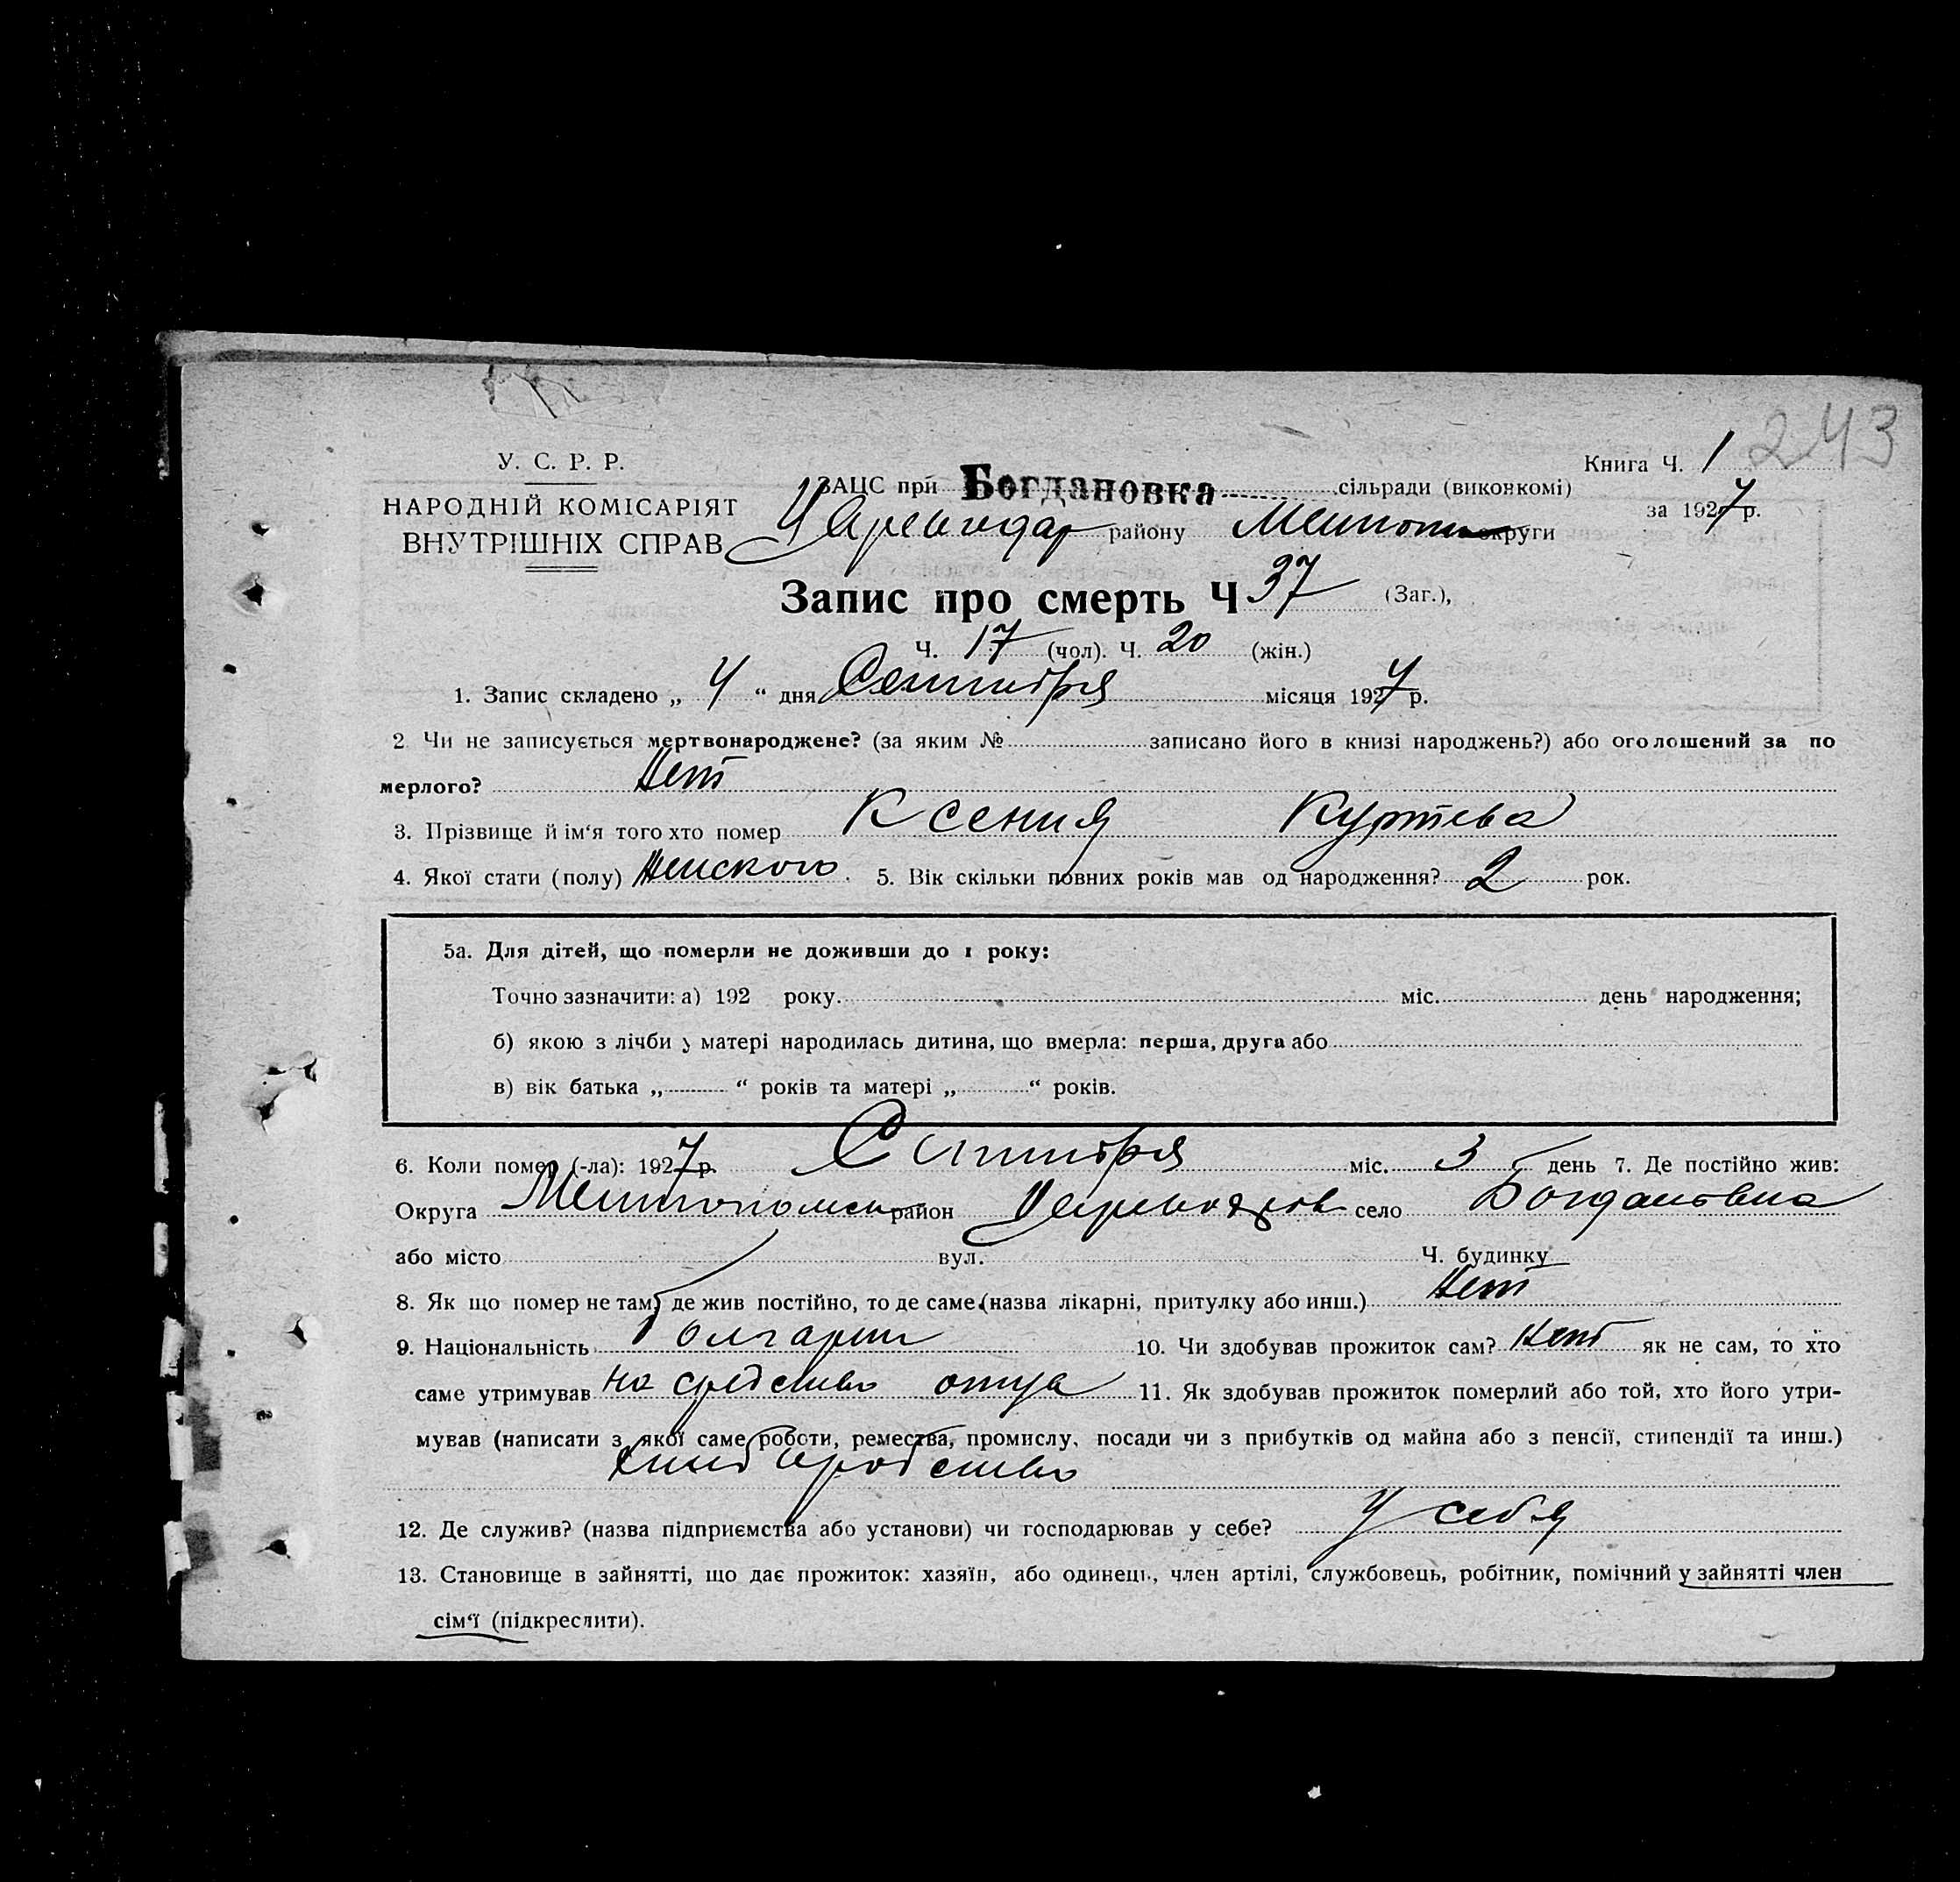 243
У. С. Р. Р.
НАРОДНІЙ КОМІСАРІЯТ
ВНУТРІШНІХ СПРАВ
Книга Ч. 1
за 1927 р.
ЗАЦС при Богдановка сільради (виконкомі)
району Мелитоп округи
Запис про смерть Ч 37 (Заг.),
Ч. 17 (чол). Ч. 20 (жін.)
1. Запис складено „ 4 “ дня Сентября місяця 1927 р.
2 Чи не записується мертвонароджене? (за яким № записано його в книзі народжень?) або оголошений за по
мерлого? Нет
3. Прізвище й ім'я того хто помер Ксения Куртева
4. Якої стати (полу) Женского. 5. Вік скільки повних років мав од народження? 2 рок.
5а. Для дітей, що померли не доживши до 1 року:
Точно зазначити: а) 192 року. міс. день народження;
б) якою з лічби у матері народилась дитина, що вмерла: перша, друга або
в) вік батька „ “ років та матері „ “ років.
6. Коли помер (-ла): 1927 р. Сентября міс. 3 день 7. Де постійно жив:
Округа Мелитопольск район село Богдановка
або місто вул. Ч. будинку
8. Як що помер не там, де жив постійно, то де саме (назва лікарні, притулку або инш.) Нет
9. Національність Болгарин 10. Чи здобував прожиток сам? Нет як не сам, то хто
саме утримував на средство отца 11. Як здобував прожиток померлий або той, хто його утри-
мував (написати з якої саме роботи, ремества, промислу, посади чи з прибутків од майна або з пенсії, стипендії та инш.)
Хлебородство
12. Де служив? (назва підприємства або установи) чи господарював у себе? У себя
13. Становище в зайнятті, що дає прожиток: хазяїн, або одинець, член артілі, службовець, робітник, помічний у зайнятті член
сім'ї (підкреслити).